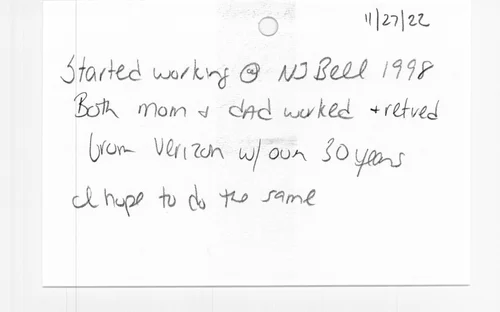 11/27/22
Started working @ NJ Bell 1998
Both mom & dad worked + retired
from Verizon w/ over 30 years
I hope to do the same